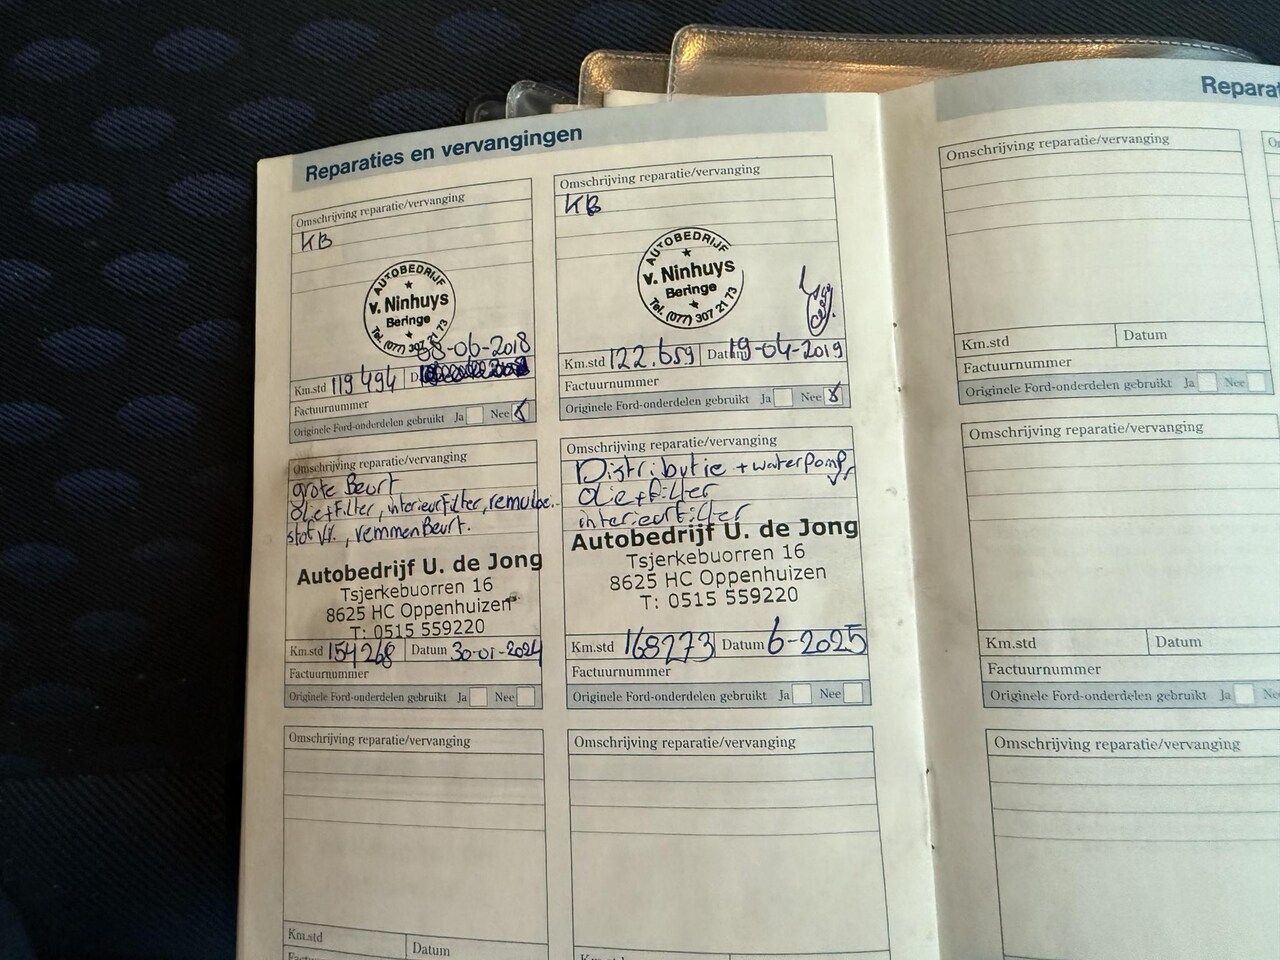 Reparaties en vervangingen
Omschrijving reparatie/vervanging
KB
AUTOBEDRIJF
v. Ninhuys
Beringe
Tel. (077) 307 21 73
08-06-2018
Km.std 119494
Factuurnummer
Originele Ford-onderdelen gebruikt Ja Nee
Omschrijving reparatie/vervanging
KB
AUTOBEDRIJF
v. Ninhuys
Beringe
Tel. (077) 307 21 73
Km.std 122.659 Datum 19-04-2019
Factuurnummer
Originele Ford-onderdelen gebruikt Ja Nee
Omschrijving reparatie/vervanging
grote Beurt
olie+Filter, interieurFilter, remvloei-
stof VV., remmenBeurt.
Autobedrijf U. de Jong
Tsjerkebuorren 16
8625 HC Oppenhuizen
T: 0515 559220
Km.std 154268 Datum 30-01-2024
Factuurnummer
Originele Ford-onderdelen gebruikt Ja Nee
Omschrijving reparatie/vervanging
Distributie + waterpomp,
olie+filter
interieurfilter
Autobedrijf U. de Jong
Tsjerkebuorren 16
8625 HC Oppenhuizen
T: 0515 559220
Km.std 168273 Datum 6-2025
Factuurnummer
Originele Ford-onderdelen gebruikt Ja Nee
Omschrijving reparatie/vervanging
Km.std Datum
Omschrijving reparatie/vervanging
Reparat
Omschrijving reparatie/vervanging
Km.std Datum
Factuurnummer
Originele Ford-onderdelen gebruikt Ja Nee
Omschrijving reparatie/vervanging
Km.std Datum
Factuurnummer
Originele Ford-onderdelen gebruikt Ja Nee
Omschrijving reparatie/vervanging